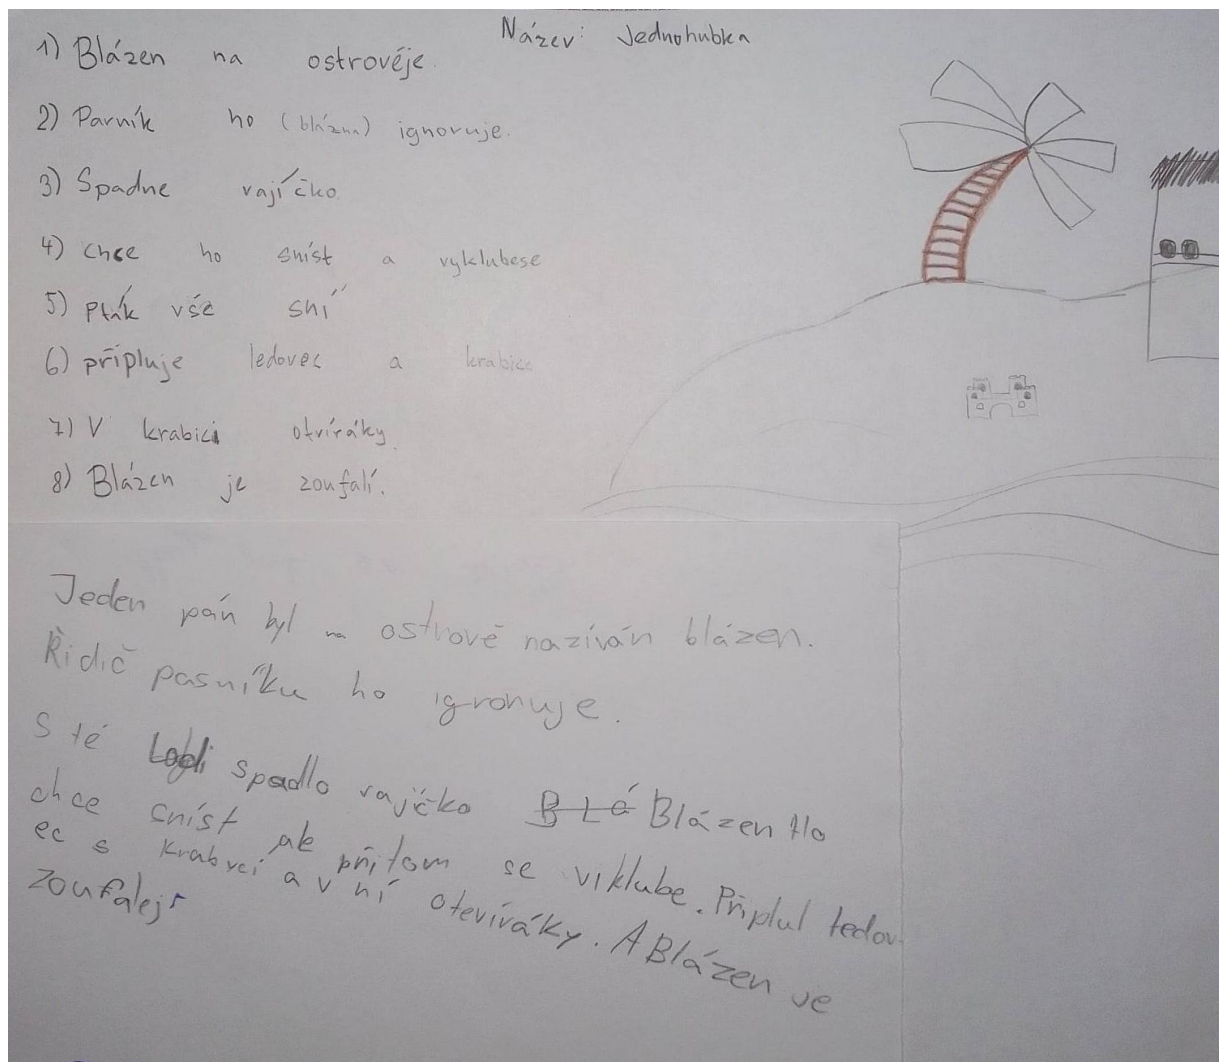 Název: Jednohubka
1) Blázen na ostrověje.
2) Parník ho (blázna) ignoruje.
3) Spadne vajíčko.
4) Chce ho sníst a vyklubese
5) Pták vše sní
6) připluje ledovec a krabice
7) V krabici otvíráky.
8) Blázen je zoufalí.
Jeden pán byl na ostrově nazíván blázen.
Řidič pasníku ho igronuje.
S té Lodi spadlo vajíčko B L á Blázen Ho
chce sníst ale přitom se viklube. Připlul ledov-
ec s krabicí a v ní otevíráky. A Blázen je
zoufalej